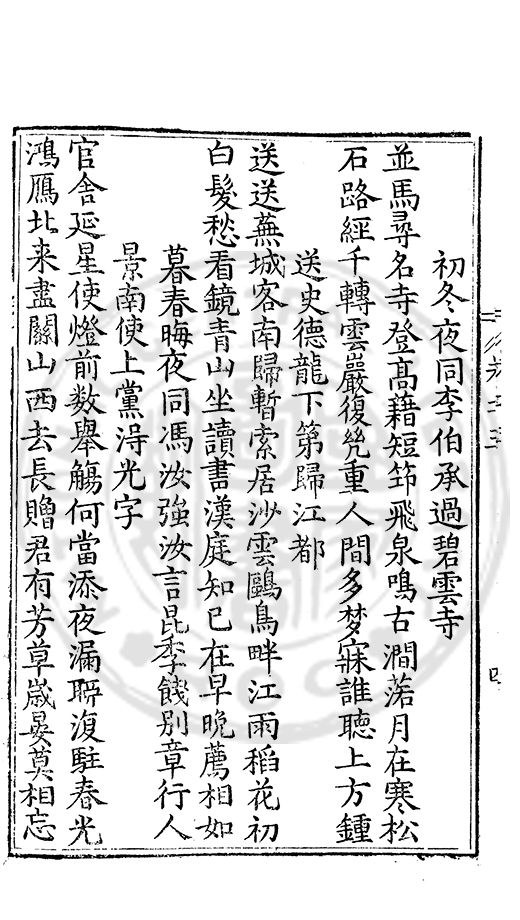 初冬夜同李伯承過碧雲寺
並馬尋名寺登高藉短笻飛泉鳴古澗落月在寒松
石路經千轉雲巖復幾重人間多夢寐誰聽上方鍾
送史德龍下第歸江都
送送蕪城客南歸暫索居沙雲鷗鳥畔江雨稻花初
白髮愁看鏡青山坐讀書漢庭知已在早晚薦相如
暮春晦夜同馮汝強汝言昆季餞別章行人
景南使上黨淂光字
官舍延星使燈前数舉觴何當添夜漏聊復駐春光
鴻鴈北来盡關山西去長贈君有芳草歲晏莫相忘